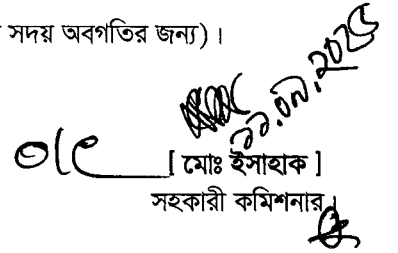 সদয় অবগতির জন্য)।
১১.০৭.২০২৫
[ মোঃ ইসাহাক ]
সহকারী কমিশনার।